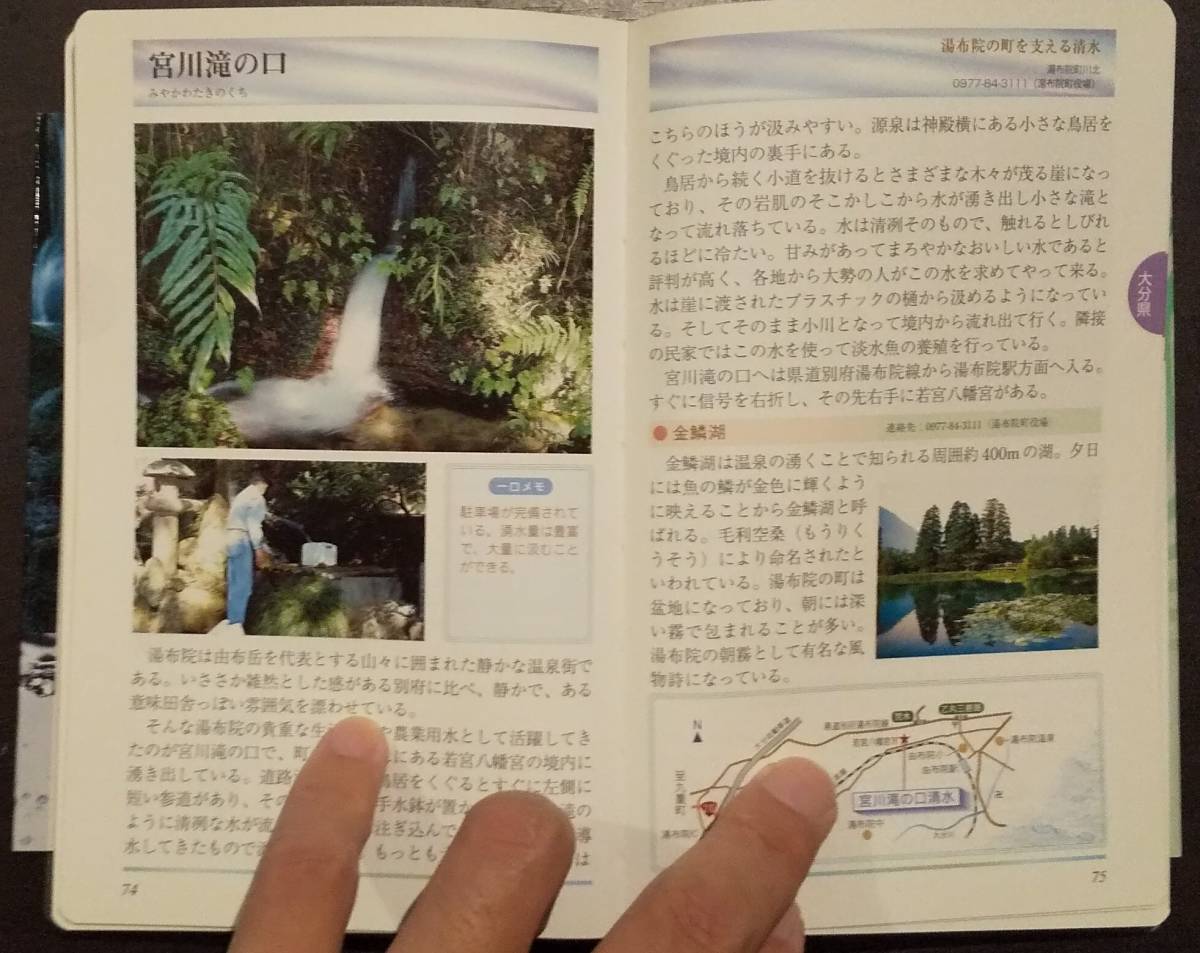 宮川滝の口
みやかわたきのくち
一口メモ
駐車場が完備されて
いる。湧水量は豊富
で、大量に汲むこと
ができる。
湯布院は由布岳を代表とする山々に囲まれた静かな温泉街で
ある。いささか雑然とした感がある別府に比べ、静かで、ある
意味田舎っぽい雰囲気を漂わせている。
そんな湯布院の貴重な生 や農業用水として活躍してき
たのが宮川滝の口で、町 にある若宮八幡宮の境内に
湧き出している。道路 鳥居をくぐるとすぐに左側に
短い参道があり、その 手水鉢が置か 滝の
ように清冽な水が流 注ぎ込んで 導
水してきたもので もっとも は
74
湯布院の町を支える清水
湯布院町川北
0977-84-3111（湯布院町役場）
こちらのほうが汲みやすい。源泉は神殿横にある小さな鳥居を
くぐった境内の裏手にある。
鳥居から続く小道を抜けるとさまざまな木々が茂る崖になっ
ており、その岩肌のそこかしこから水が湧き出し小さな滝と
なって流れ落ちている。水は清冽そのもので、触れるとしびれ
るほどに冷たい。甘みがあってまろやかなおいしい水であると
評判が高く、各地から大勢の人がこの水を求めてやって来る。
水は崖に渡されたプラスチックの樋から汲めるようになってい
る。そしてそのまま小川となって境内から流れ出て行く。隣接
の民家ではこの水を使って淡水魚の養殖を行っている。
宮川滝の口へは県道別府湯布院線から湯布院駅方面へ入る。
すぐに信号を右折し、その先右手に若宮八幡宮がある。
大分県
●金鱗湖
連絡先：0977-84-3111（湯布院町役場）
金鱗湖は温泉の湧くことで知られる周囲約400mの湖。夕日
には魚の鱗が金色に輝くよう
に映えることから金鱗湖と呼
ばれる。毛利空桑（もうりく
うそう）により命名されたと
いわれている。湯布院の町は
盆地になっており、朝には深
い霧で包まれることが多い。
湯布院の朝霧として有名な風
物詩になっている。
N
大分自動車道
県道別府湯布院線
乙丸三差路
若宮八幡宮
由布院小
由布院駅
湯布院温泉
至九重町
湯布院IC
宮川滝の口湧水
湯布院中
大分川
75